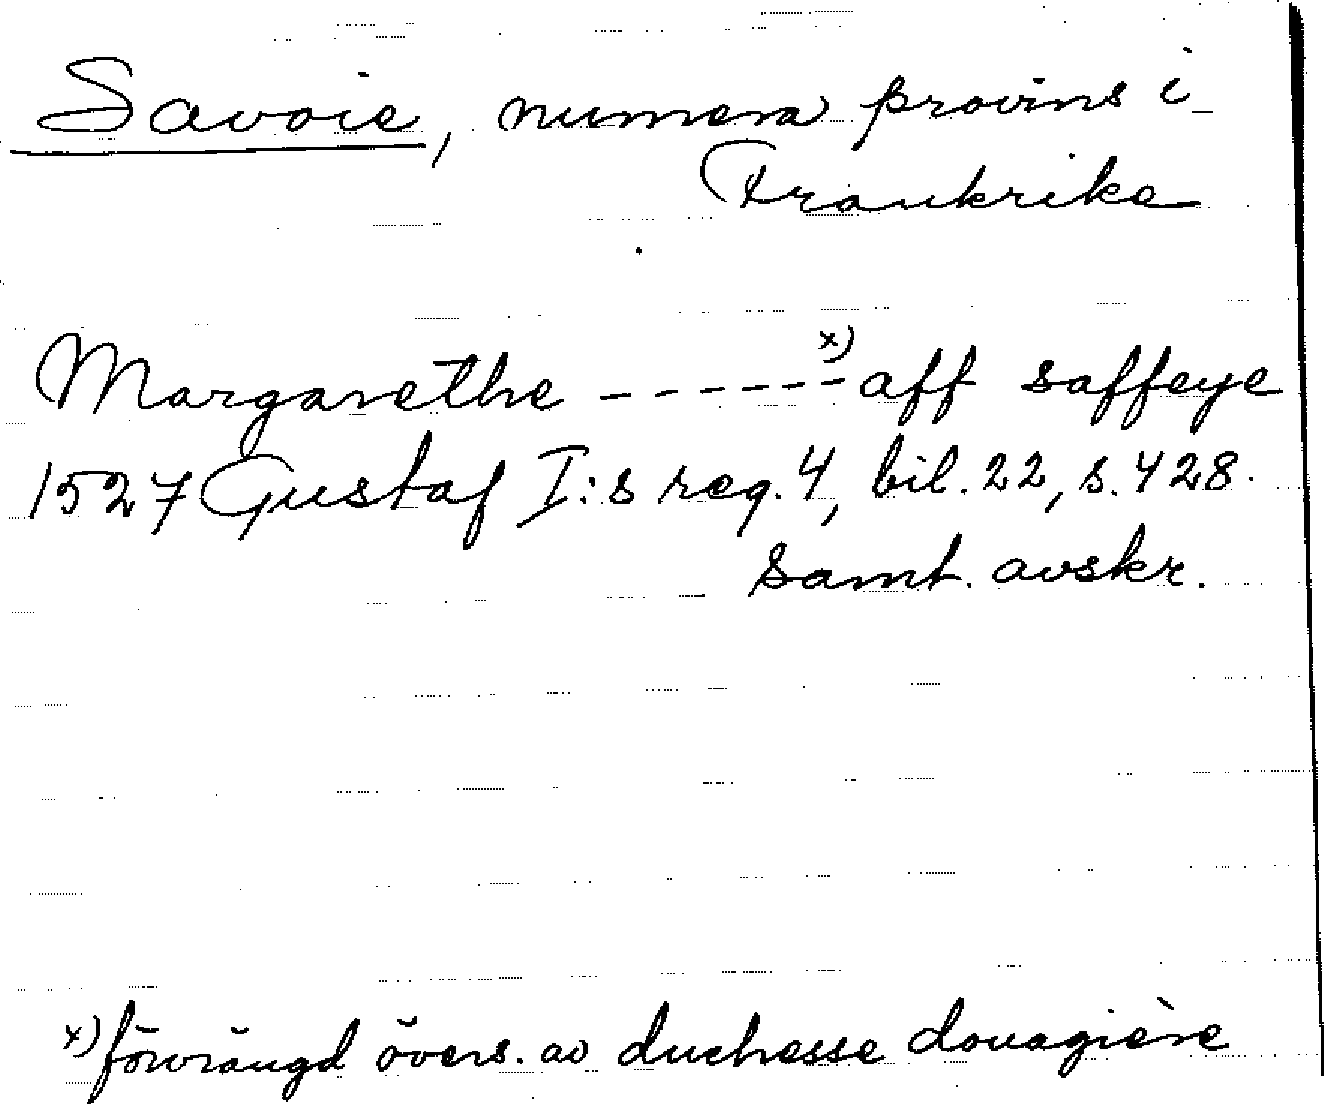 Savoie, numera provins i
Frankrike
Margarethe ------x) aff saffeye
1527 Gustaf I:s reg. 4, bil. 22, s. 428.
Samt. avskr.
x) förvrängd övers. av duchesse douagière